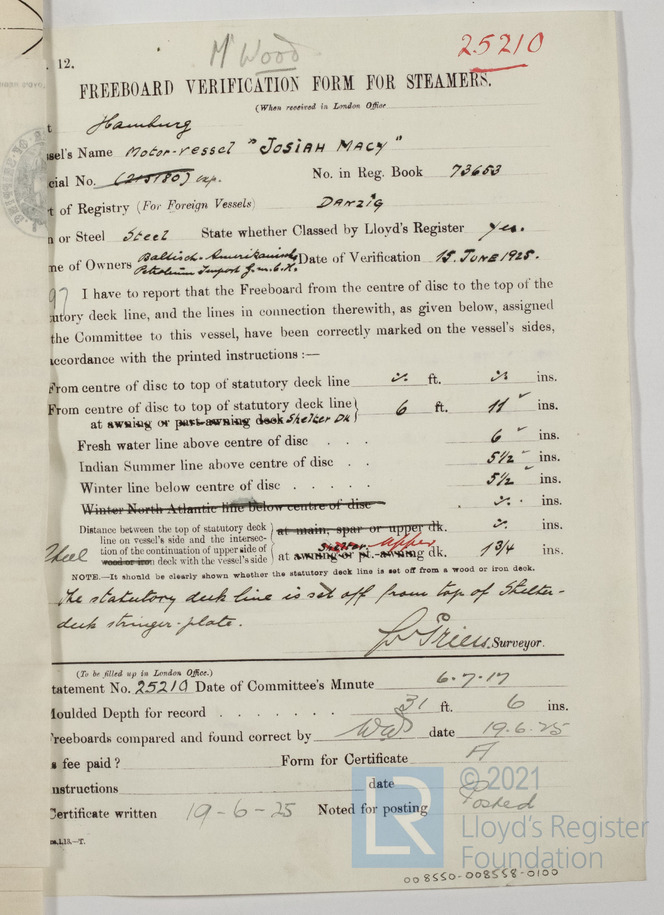 12.
Mr Wood
25210
FREEBOARD VERIFICATION FORM FOR STEAMERS.
(When received in London Office
t Hamburg
sel's Name Motor-vessel "JOSIAH MACY"
cial No. (215180) exp. No. in Reg. Book 73653
t of Registry (For Foreign Vessels) DANZIG
n or Steel Steel State whether Classed by Lloyd's Register Yes.
me of Owners Baltisch-Amerikanische Petroleum Import G.m.b.H. Date of Verification 15. JUNE 1925.
I have to report that the Freeboard from the centre of disc to the top of the
tutory deck line, and the lines in connection therewith, as given below, assigned
the Committee to this vessel, have been correctly marked on the vessel's sides,
accordance with the printed instructions :—
From centre of disc to top of statutory deck line ft. ins.
From centre of disc to top of statutory deck line 6 ft. 11 ins.
at awning or part-awning deck Shelter Dk
Fresh water line above centre of disc . . . 6 ins.
Indian Summer line above centre of disc . . 5 1/2 ins.
Winter line below centre of disc . . . . . 5 1/2 ins.
Winter North Atlantic line below centre of disc . ins.
Distance between the top of statutory deck
line on vessel's side and the intersec-
tion of the continuation of upper side of
wood or iron deck with the vessel's side
Steel
at main, spar or upper dk. ins.
Shelter upper
at awning or pt.-awning dk. 1 3/4 ins.
NOTE.—It should be clearly shown whether the statutory deck line is set off from a wood or iron deck.
The statutory deck line is set off from top of Shelter-
deck stringer-plate.
Surveyor.
(To be filled up in London Office.)
tatement No. 25210 Date of Committee's Minute 6-7-17
Moulded Depth for record . . . . . . . 31 ft. 6 ins.
Freeboards compared and found correct by date 19.6.25
s fee paid ? Form for Certificate A
nstructions date
Certificate written 19-6-25 Noted for posting Posted
1,13.—T.
LR
© 2021
Lloyd's Register
Foundation
008550-008558-0100